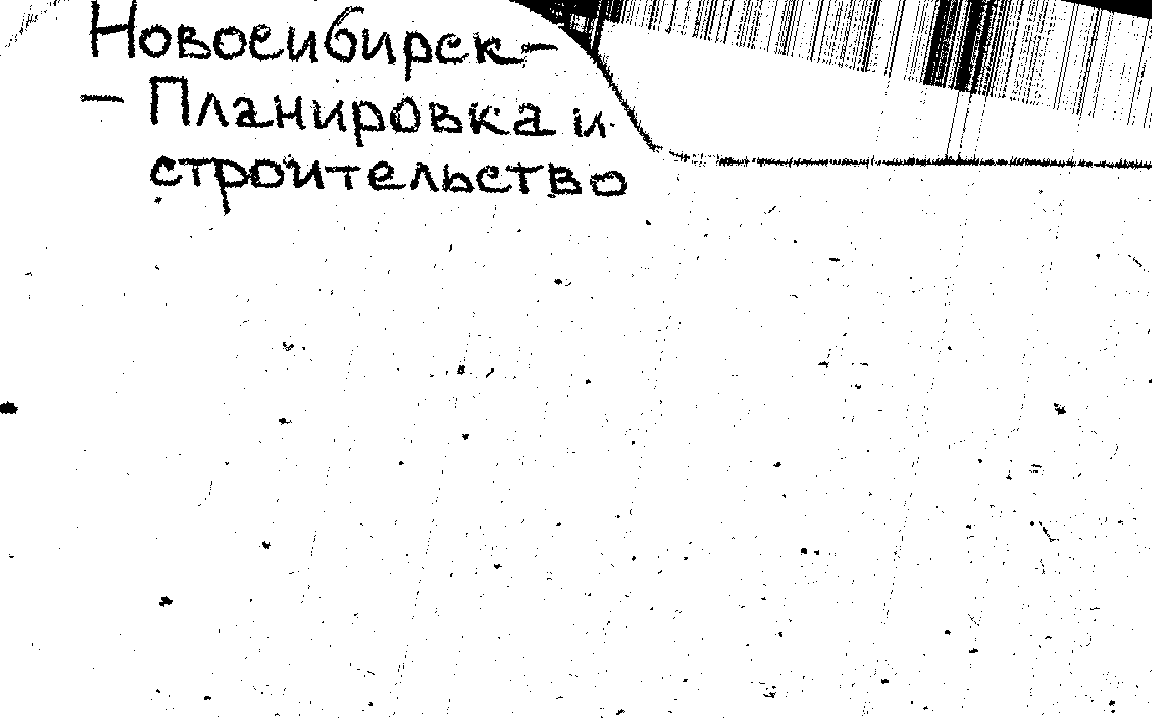 Новосибирск-
- Планировка и
строительство